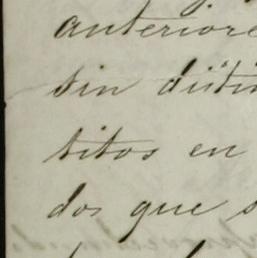 anteriore
sin disti
titos en
dos que s